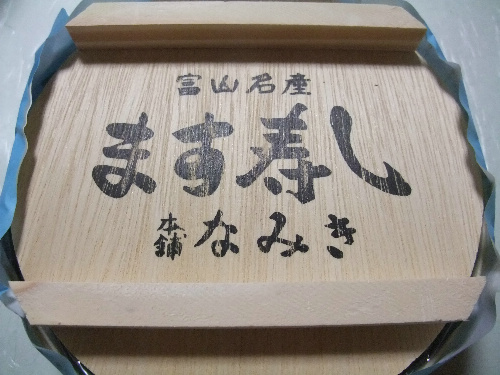 富山名産
ます寿し
本舗なみき